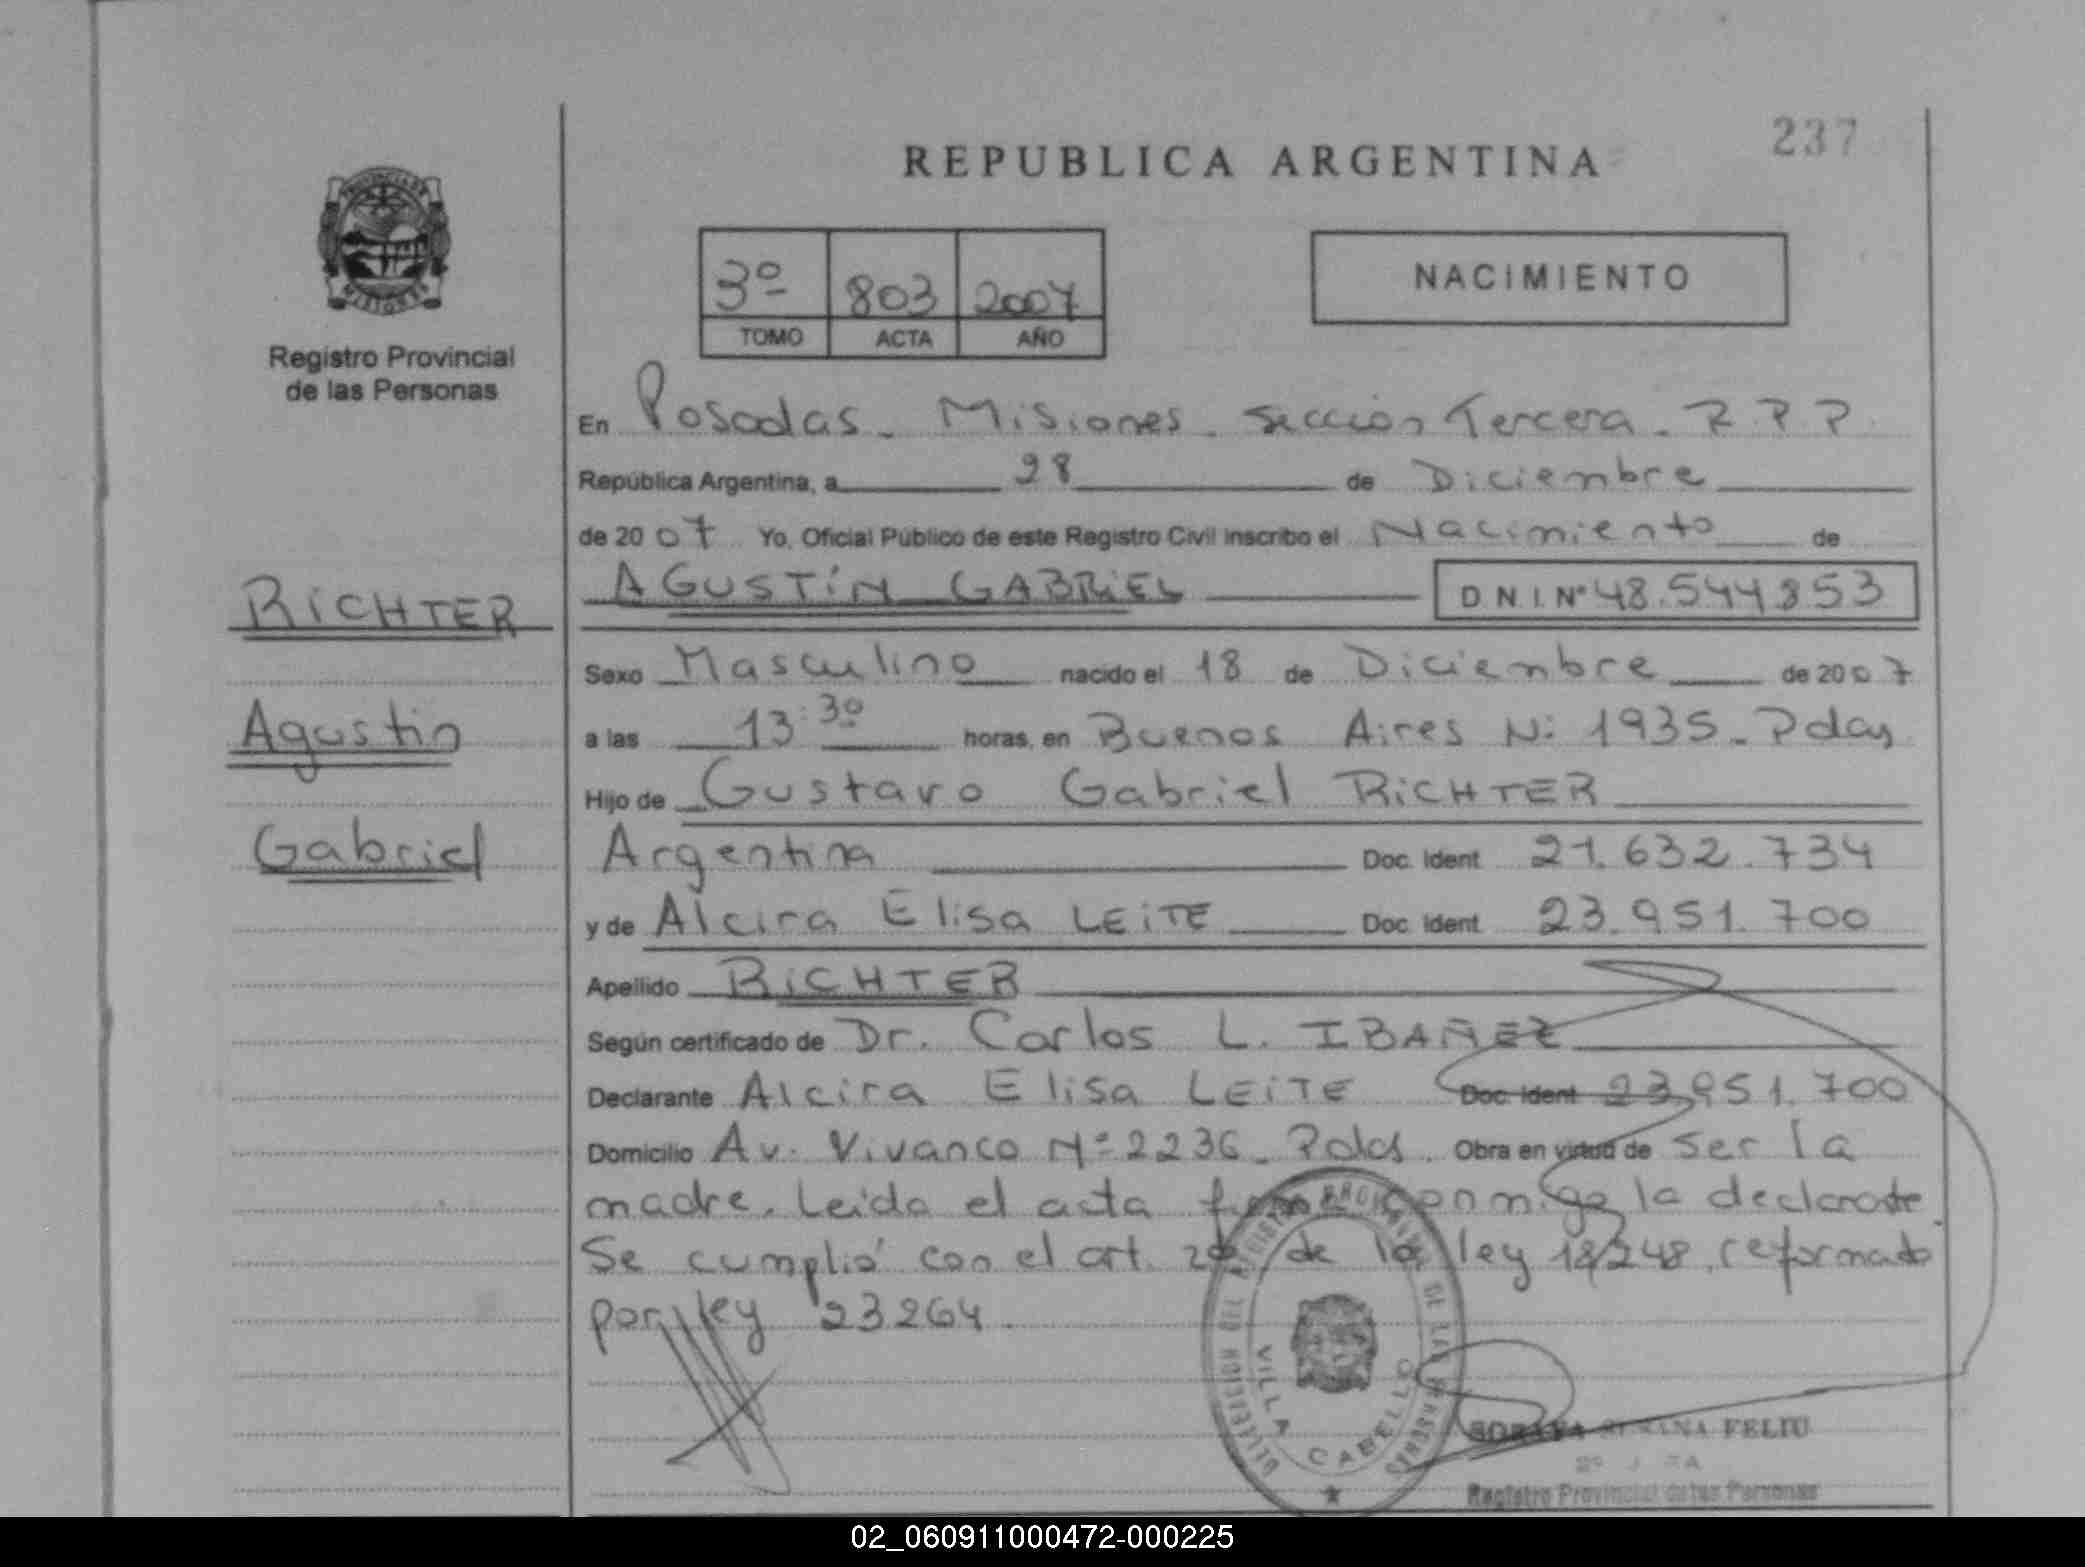 237
REPUBLICA ARGENTINA
PROVINCIA DE
MISIONES
Registro Provincial
de las Personas
3º 803 2007
TOMO ACTA AÑO
NACIMIENTO
En Posadas. Misiones. Sección Tercera. R.P.P.
República Argentina, a 28 de Diciembre
de 2007 Yo, Oficial Público de este Registro Civil inscribo el Nacimiento de
AGUSTÍN GABRIEL D N.I. Nº 48.544853
RICHTER
Agustin
Gabriel
Sexo Masculino nacido el 18 de Diciembre de 2007
a las 13:30 horas, en Buenos Aires N: 1935 - Pdas
Hijo de Gustavo Gabriel RICHTER
Argentina Doc. Ident 21.632.734
y de Alcira Elisa LEITE Doc. Ident 23.951.700
Apellido RICHTER
Según certificado de Dr. Carlos L. IBAÑEZ
Declarante Alcira Elisa LEITE Doc. Ident 23951.700
Domicilio Av. Vivanco Nº 2236 - Pdas. Obra en virtud de ser la
madre. Leida el acta firma conmigo la declarante.
Se cumplió con el art. de la ley 18248, reformado
por ley 23264.
DELEGACION DEL REGISTRO PROVINCIAL DE LAS PERSONAS
VILLA CABELLO
SORAYA SUSANA FELIU
Registro Provincial de las Personas
02_060911000472-000225